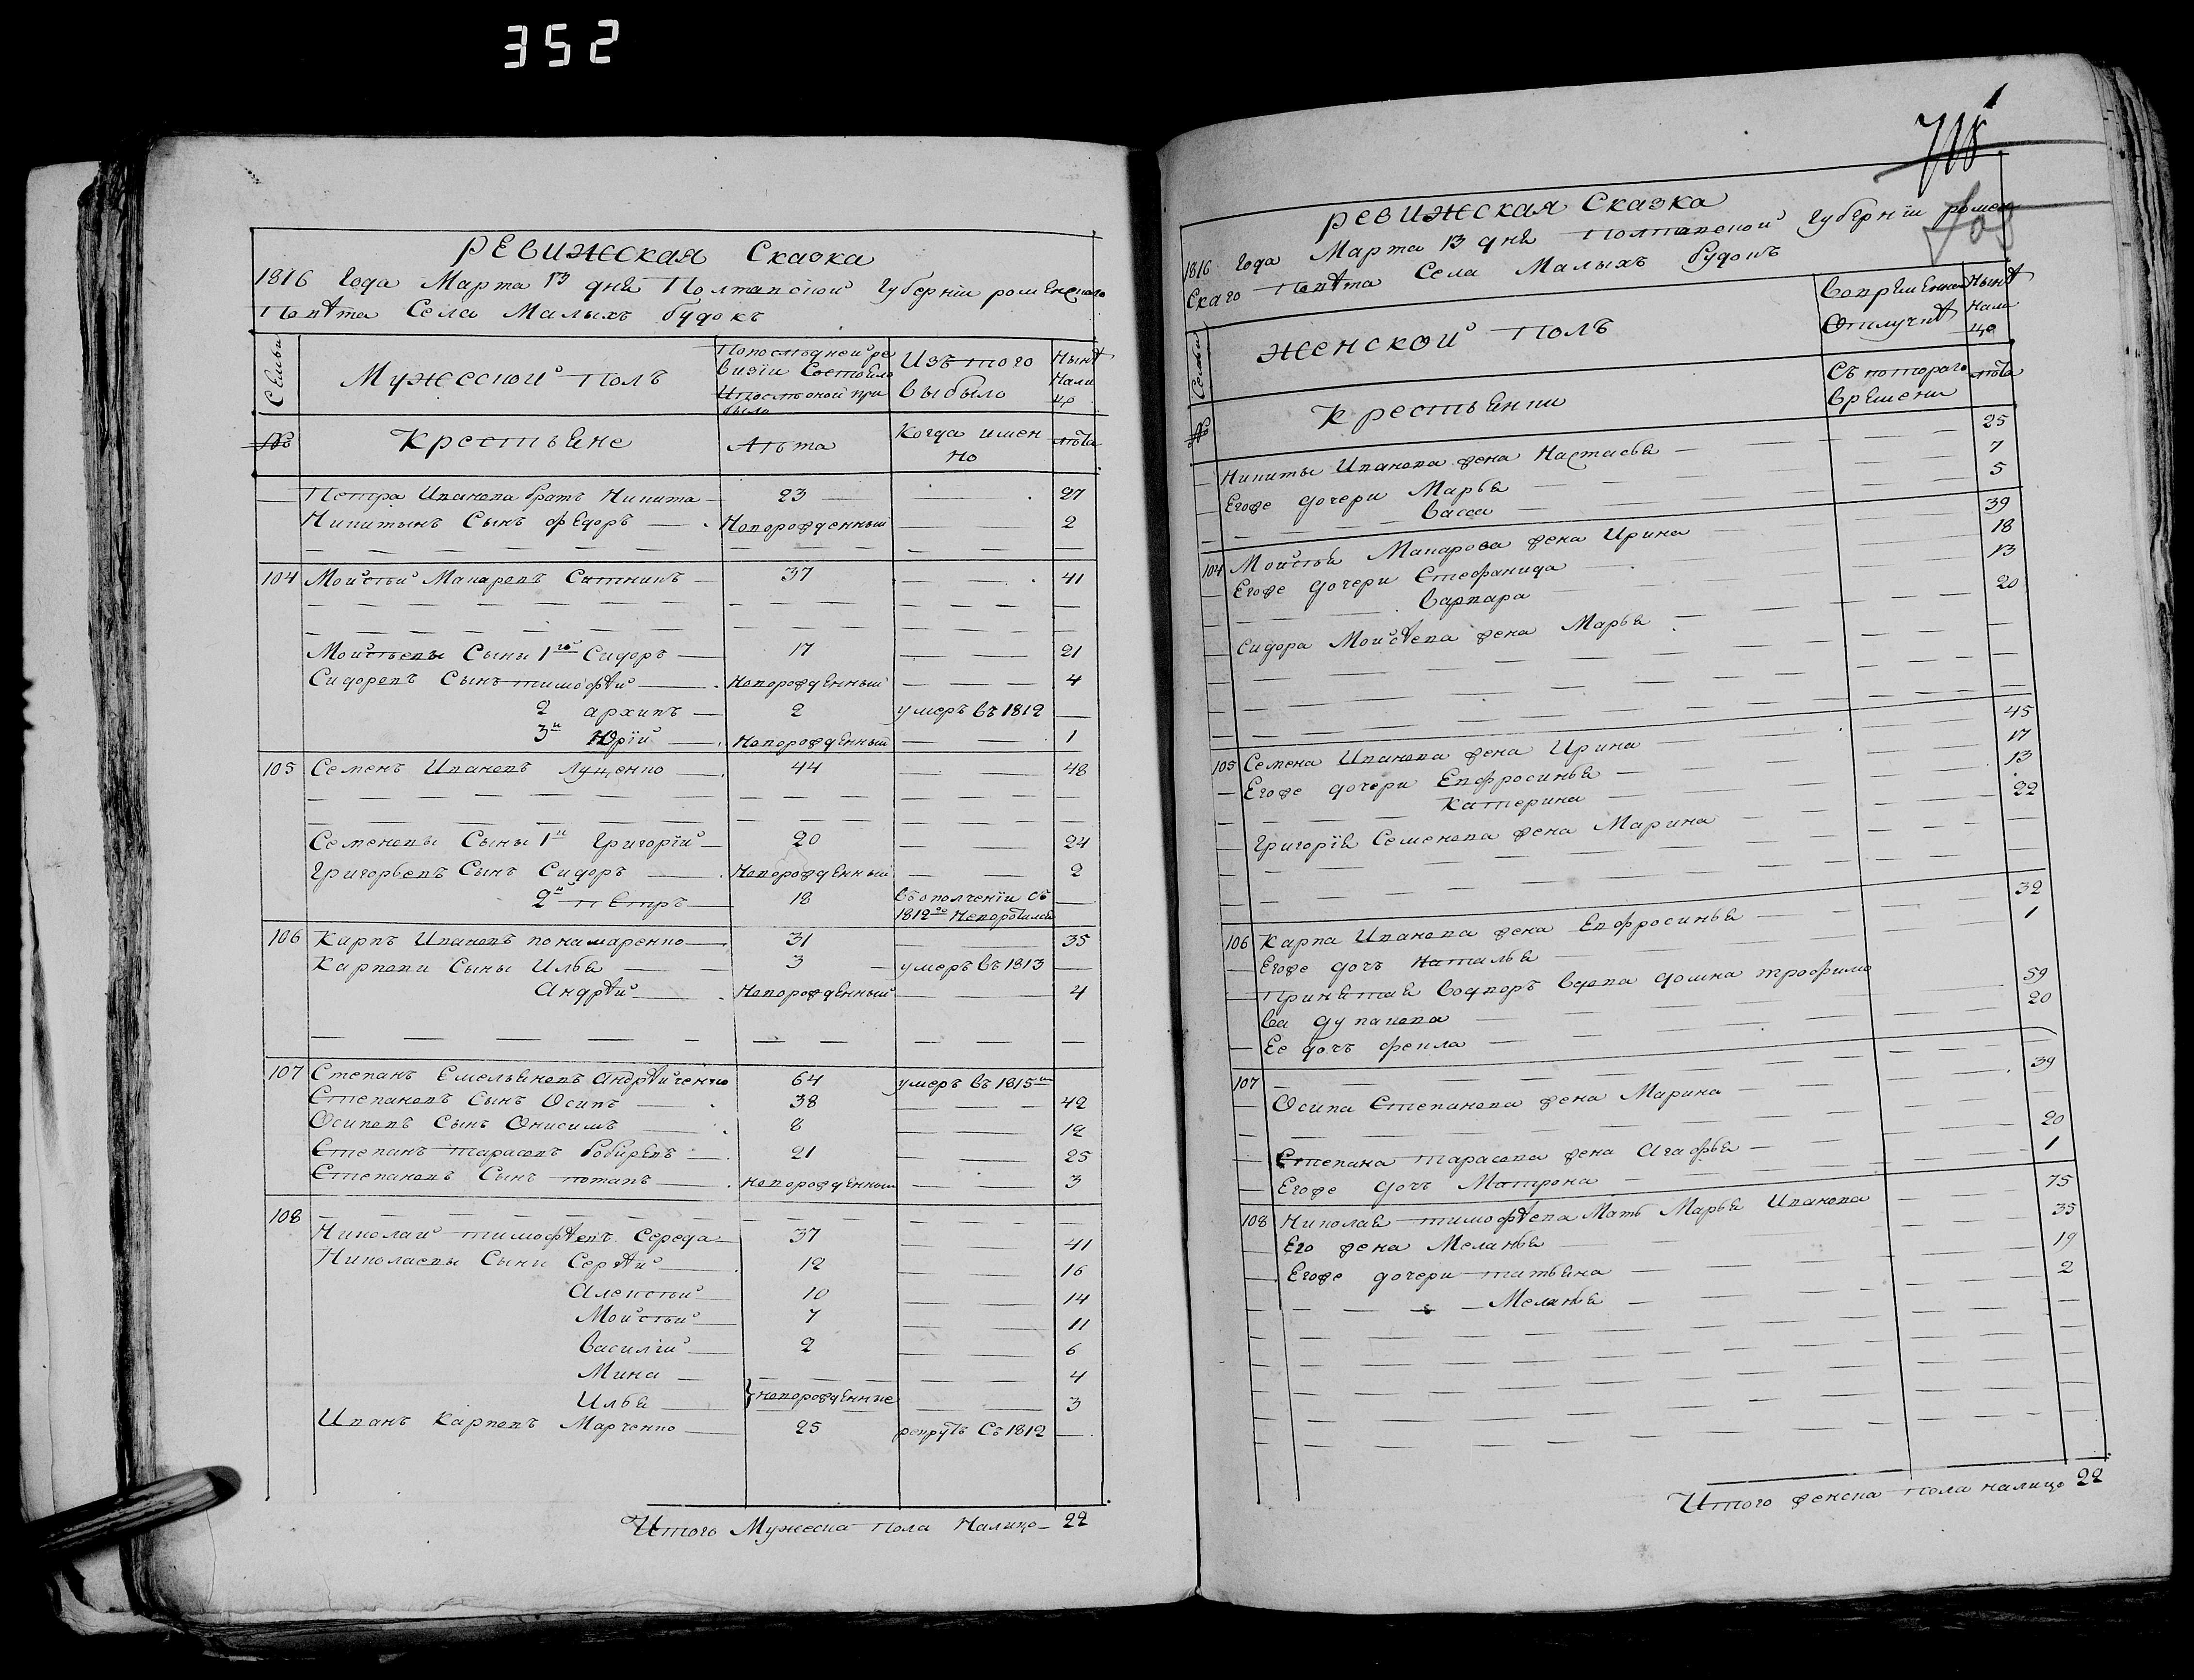 352
РЕВИЖСКАЯ Сказка
1816 Года Марта 13 дня Полтавской Губернїи роменскаго
Повѣта Села Малыхъ будокъ
Семьи
Мужеской полъ
Попослѣдней ре
визїи Состояло
Ипослѣ оной при
было
Изъ того
выбыло
Нынѣ
Нали
цо
№
Крестьяне
Лѣта
Когда имен
но
лѣта
Петра Иванова братъ Никита 23 27
Никитынъ Сынъ федоръ Новорожденный 2
104 Мойсѣй Макаревъ Ситникъ 37 41
Мойсѣевы Сыны 1й Сидоръ 17 21
Сидоревъ Сынъ тимофѣй Новорожденный 4
2 архипъ 2 умеръ въ 1812
3й Юрїй Новорожденный 1
105 Семенъ Ивановъ Луценко 44 48
Семеновы Сыны 1й Григорїй 20 24
Григорьевъ Сынъ Сидоръ Новорожденный 2
2й петръ 18 въополченїи съ
1812го Неворотился
106 Карпъ Ивановъ понамаренко 31 35
Карпови Сыны Илья 3 умеръ въ 1813
Андрѣй Новорожденный 4
107 Степанъ Емельяновъ андрѣиченко 64 умеръ въ 1815м
Степановъ Сынъ Осипъ 38 42
Осиповъ Сынъ Онисимъ 8 12
Степанъ тарасовъ бобиревъ 21 25
Степановъ Сынъ потапъ новорожденный 3
108
Николай тимофѣевъ Середа 37 41
Николаевы Сыны Сергѣй 12 16
Алексѣй 10 14
Мойсѣй 7 11
василїй 2 6
Мина 4
новорожденные
Илья 3
Иванъ Карповъ Марченко 25 рекрутъ Съ 1812
Итого Мужеска пола Налицо 22
715
РЕВИЖСКАЯ Сказка
1816 Года Марта 13 дня Полтавской Губернїи ромен
Скаго повѣта Села Малыхъ будокъ
Семьи
женской полъ
вовременной
Отлучкѣ
Нынѣ
Нали
цо
№
Крестьянки
Съ котораго
времени
лѣта
Никиты Иванова жена Настасья 25
Егоже дочери Марья 7
васса 5
104 Мойсѣя Макарова жена Ирина 39
Егоже дочери Стефанида 18
варвара 13
Сидора Мойсѣева жена Марья 20
105 Семена Иванова жена Ирина 45
Егоже дочери Евфросинья 17
Катерина 13
Григорїя Семенова жена Марина 22
106 Карпа Иванова жена Евфросинья 32
Егоже дочъ Наталья 1
Принятая водворъ вдова домна трофимо
ва дупанова 59
Ее дочъ фекла 20
107
Осипа Степанова жена Марина 39
Степана тарасова жена Агафья 20
Егоже дочъ Матрона 1
108 Николая тимофѣева Мать Марья Иванова 75
Его жена Меланья 35
Егоже дочери татьяна 19
Меланья 2
Итого женска пола налицо 22